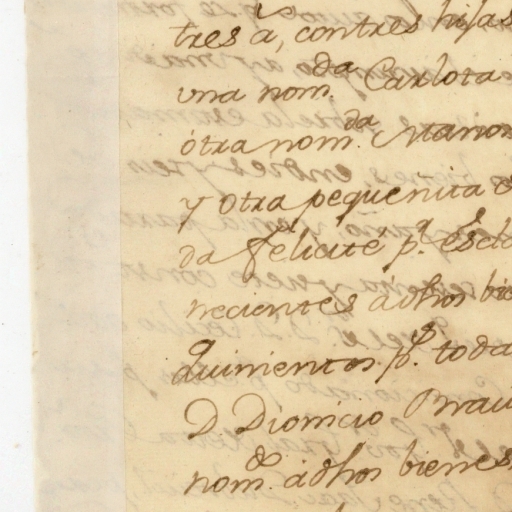 tres a, con tres hijas
una nom.da Carlota
otra nom.da Marion
y otra pequeñita
da felicité p.r escla
necientes a dhos bie
Quinientos p.s toda
D Dionicio Brau
nom.do a dhos bienes